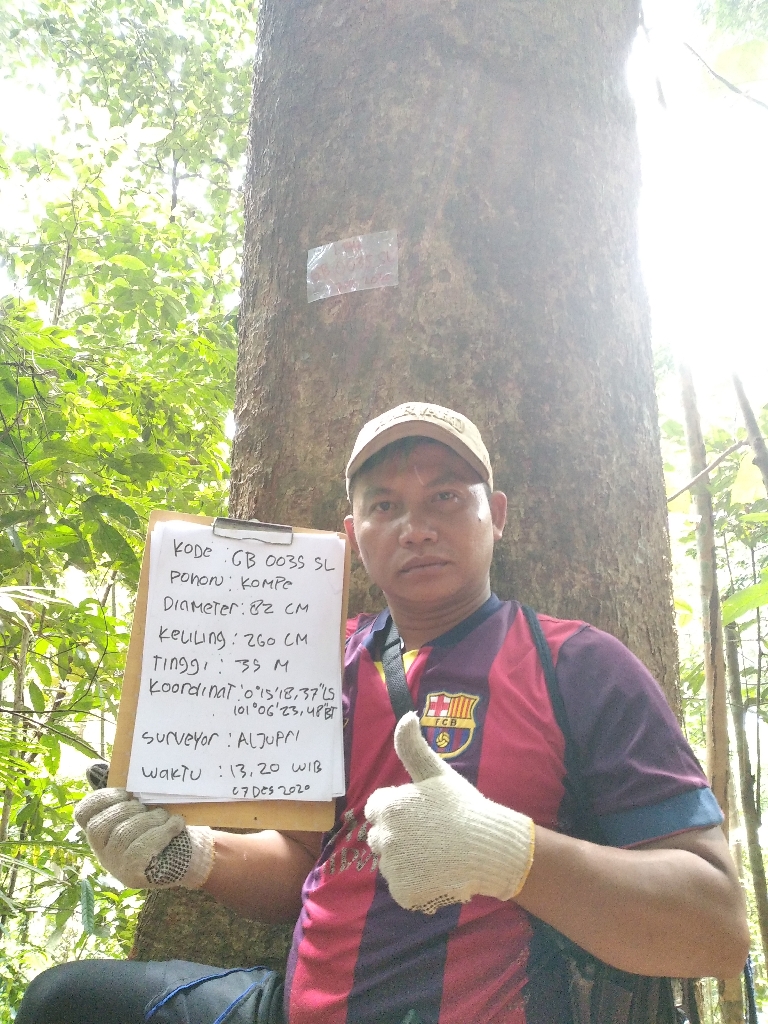 KODE : GB 0035 SL
POHON : KOMPE
DIAMETER : 82 CM
KELILING : 260 CM
TINGGI : 35 M
KOORDINAT : 0°15'18,37"LS
101°06'23,48"BT
SURVEYOR : ALJUPRI
WAKTU : 13,20 WIB
07 DES 2020
FCB